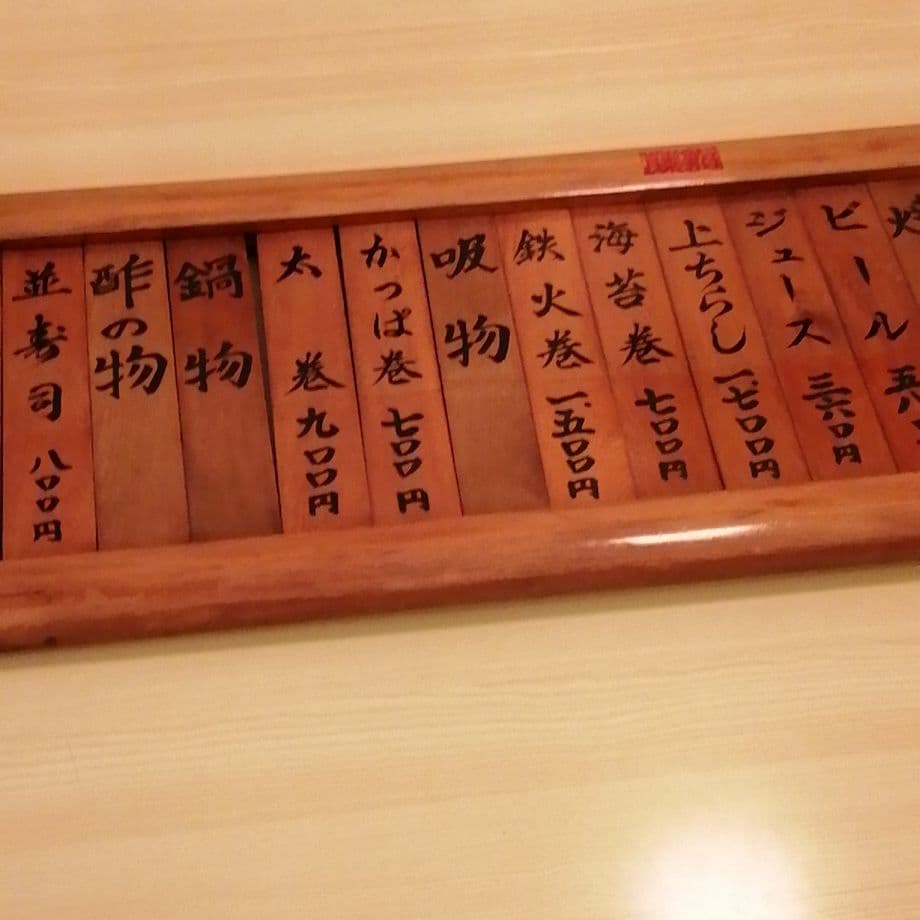 ビール
ジュース 三六〇円
上ちらし 一、七〇〇円
海苔巻 七〇〇円
鉄火巻 一、五〇〇円
吸物
かっぱ巻 七〇〇円
太巻 九〇〇円
鍋物
酢の物
並寿司 八〇〇円